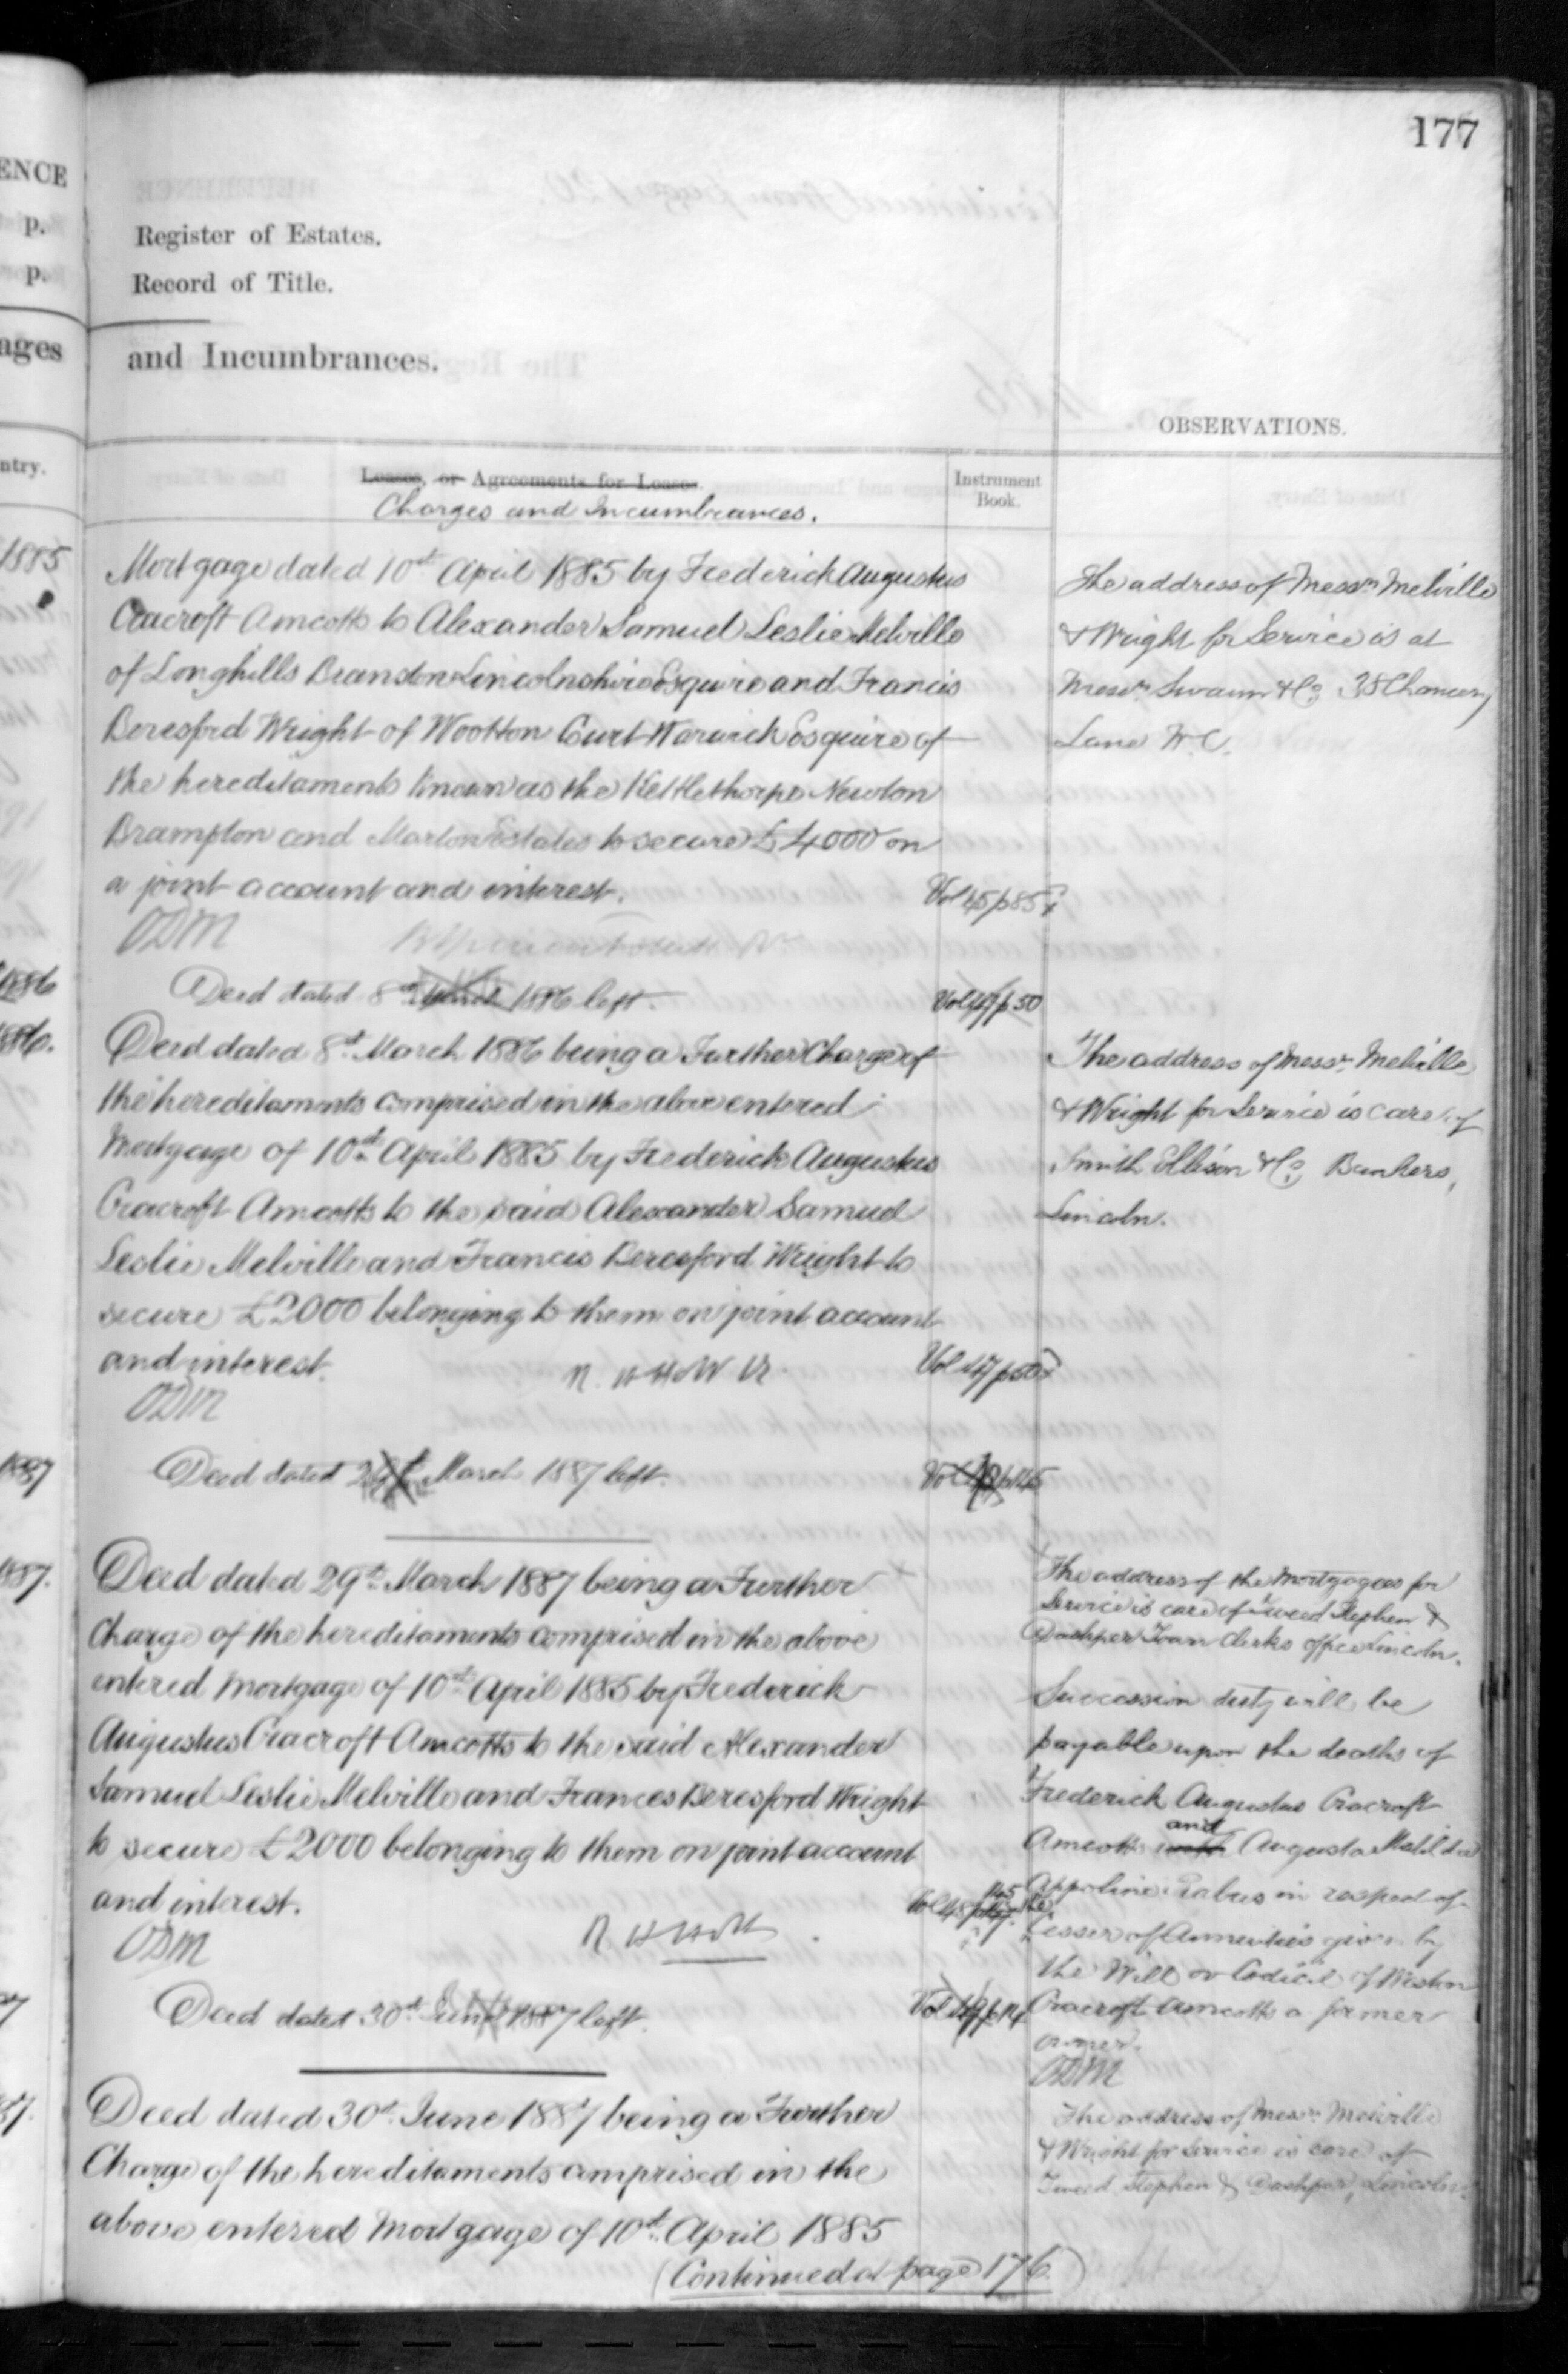 177
ENCE
p.
p.
ages
ntry.
1885
1886
1886.
1887
1887.
Register of Estates.
Record of Title.
and Incumbrances.
OBSERVATIONS.
Leases, or Agreements for Lease.
Charges and Incumbrances.
Instrument
Book.
Mortgage dated 10th April 1885 by Frederick Augustus
Cracroft Amcotts to Alexander Samuel Leslie Melville
of Longhills Branston Lincolnshire Esquire and Francis
Beresford Wright of Wootton Court Warwick Esquire of
the hereditaments known as the Kettlethorpe Newton
Brampton and Marton Estates to secure £4000 on
a joint account and interest.
Vol 45 p 85
ODM
Deed dated 8th March 1886 left.
Vol 47 p 50
Deed dated 8th March 1886 being a Further Charge of
the hereditaments comprised in the above entered
Mortgage of 10th April 1885 by Frederick Augustus
Cracroft Amcotts to the said Alexander Samuel
Leslie Melville and Francis Beresford Wright to
secure £2000 belonging to them on joint account
and interest.
Vol 47 p 50
ODM
Deed dated 29th March 1887 left.
Deed dated 29th March 1887 being a Further
Charge of the hereditaments comprised in the above
entered Mortgage of 10th April 1885 by Frederick
Augustus Cracroft Amcotts to the said Alexander
Samuel Leslie Melville and Frances Beresford Wright
to secure £2000 belonging to them on joint account
and interest.
Vol 48 p 145
ODM
Deed dated 30th June 1887 left.
Vol 49 p 14
Deed dated 30th June 1887 being a Further
Charge of the hereditaments comprised in the
above entered Mortgage of 10th April 1885
(Continued at page 176)
The address of Messrs Melville
& Wright for Service is at
Messrs Swann & Co 38 Chancery
Lane W.C.
The address of Messrs Melville
& Wright for Service is care of
Smith Ellison & Co Bankers,
Lincoln.
The address of the Mortgagees for
Service is care of Tweed Stephen &
Dashper Town Clerks office Lincoln.
Succession duty will be
payable upon the deaths of
Frederick Augustus Cracroft
and
Amcotts with Augusta Matilda
in respect of
the
Cesser of Annuities given by
the Will or Codicil of Weston
Cracroft Amcotts a former
owner.
ODM
The address of Messrs Melville
& Wright for Service is care of
Tweed Stephen & Dashper, Lincoln.